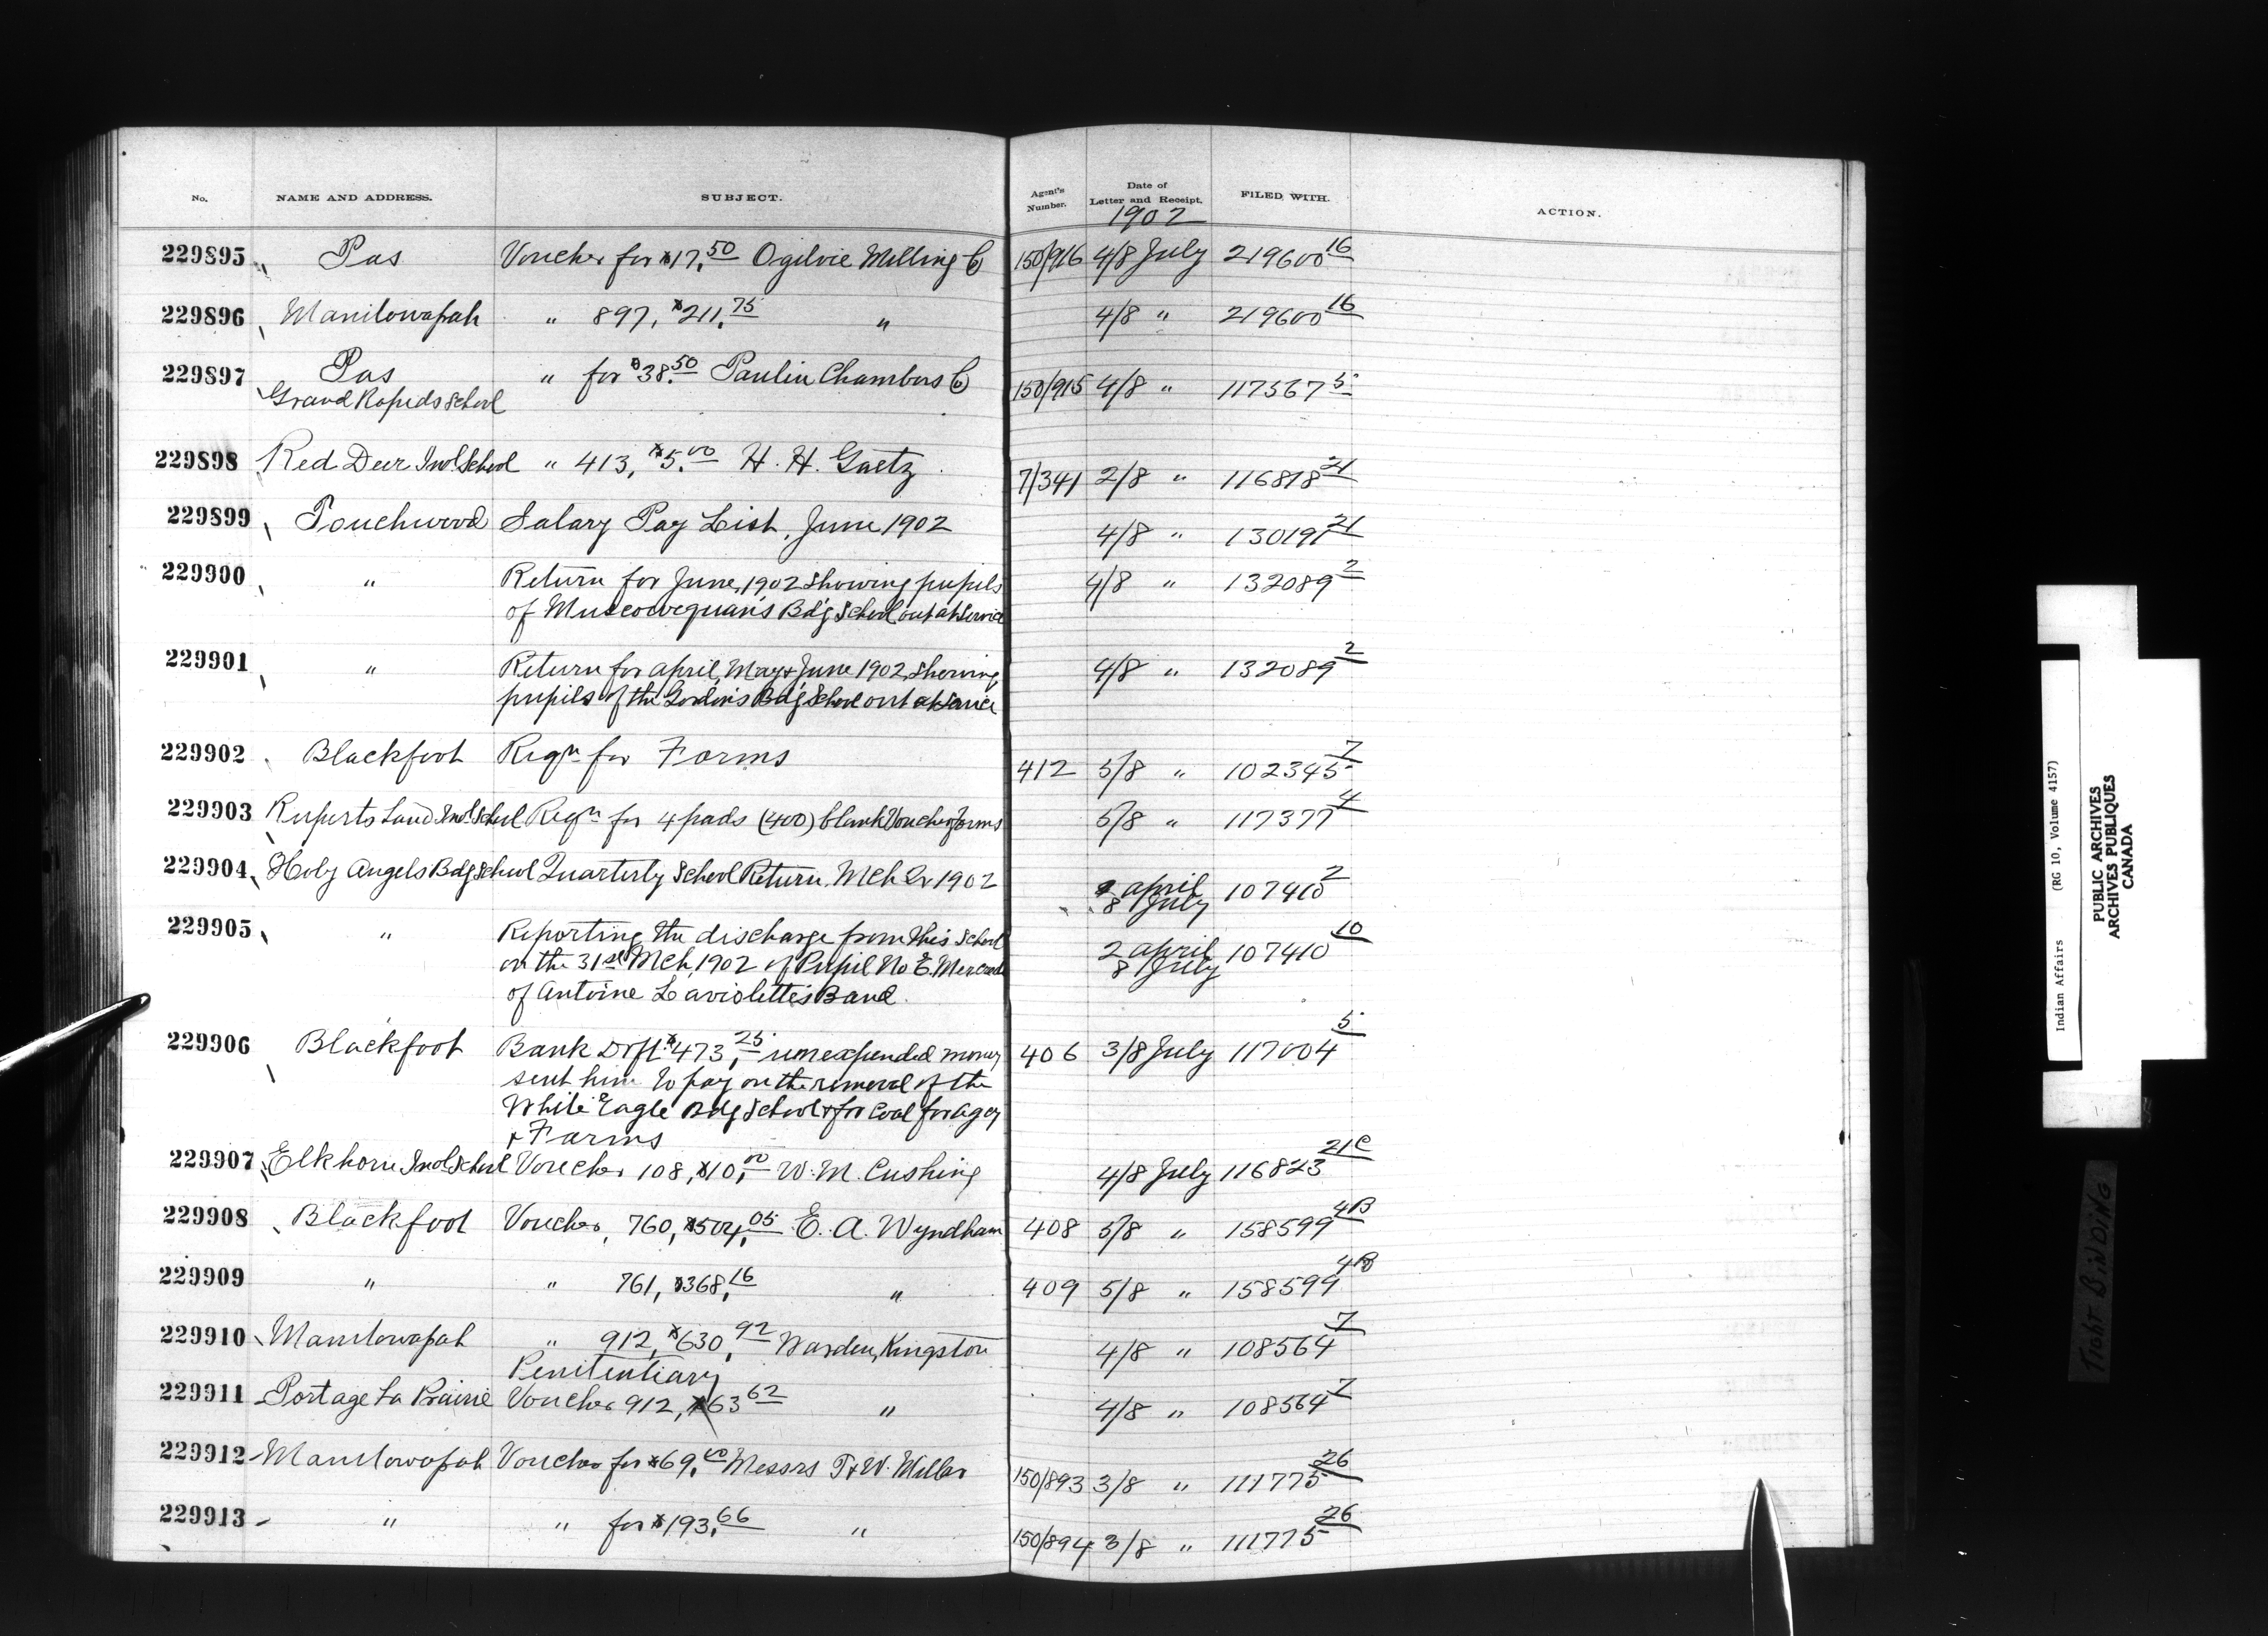 No. NAME AND ADDRESS. SUBJECT. Agent's Number. Date of Letter and Receipt. FILED WITH. ACTION.
1902
229895 Pas Voucher for $17.50 Ogilvie Milling Co 150/916 4/8 July 219600 16
229896 Manitowapah " 897, $211.75 " 4/8 " 219600 16
229897 Pas " for $38.50 Paulin Chambers Co 150/915 4/8 " 117567 5
Grand Rapids School
229898 Red Deer Indl School " 413, $5.00 H. H. Gaetz 7/341 2/8 " 116818 21
229899 Touchwood Salary Pay List, June 1902 4/8 " 130191 21
229900 " Return for June, 1902 showing pupils 4/8 " 132089 2
of Muscowequan's Bdg School out at Service
229901 " Return for April, May & June 1902, showing 4/8 " 132089 2
pupils of the Gordon's Bdg School out at Service
229902 Blackfoot Reqn for Forms 412 5/8 " 102345 7
229903 Ruperts Land Indl School Reqn for 4 pads (400) blank Voucher forms 5/8 " 117377 4
229904 Holy Angels Bdg School Quarterly School Return Mch Qr 1902 2 April 107410 2
8 July
229905 " Reporting the discharge from this School 2 April 107410 10
on the 31st Mch, 1902 of Pupil No 8. 8 July
of Antoine Laviolette's Band.
229906 Blackfoot Bank Drft $473.25 unexpended money 406 3/8 July 117004 5
sent him to pay on the removal of the
White Eagle Bdg School & for Coal for Agcy
& Farms
229907 Elkhorn Indl School Voucher 108, $10.00 W. M. Cushing 4/8 July 116823 21C
229908 Blackfoot Voucher, 760, $504.05 E. A. Wyndham 408 5/8 " 158599 4B
229909 " " 761, $368.16 " 409 5/8 " 158599 4B
229910 Manitowapah " 912, $630.92 Warden, Kingston 4/8 " 108564 7
Penitentiary
229911 Portage La Prairie Voucher 912, $63 62 " 4/8 " 108564 7
229912 Manitowapah Voucher for $69.00 Messrs T & W. Millar 150/893 3/8 " 111775 26
229913 " " for $193.66 " 150/894 3/8 " 111775 26
Indian Affairs (RG 10, Volume 4157)
PUBLIC ARCHIVES
ARCHIVES PUBLIQUES
CANADA
TIGHT BINDING